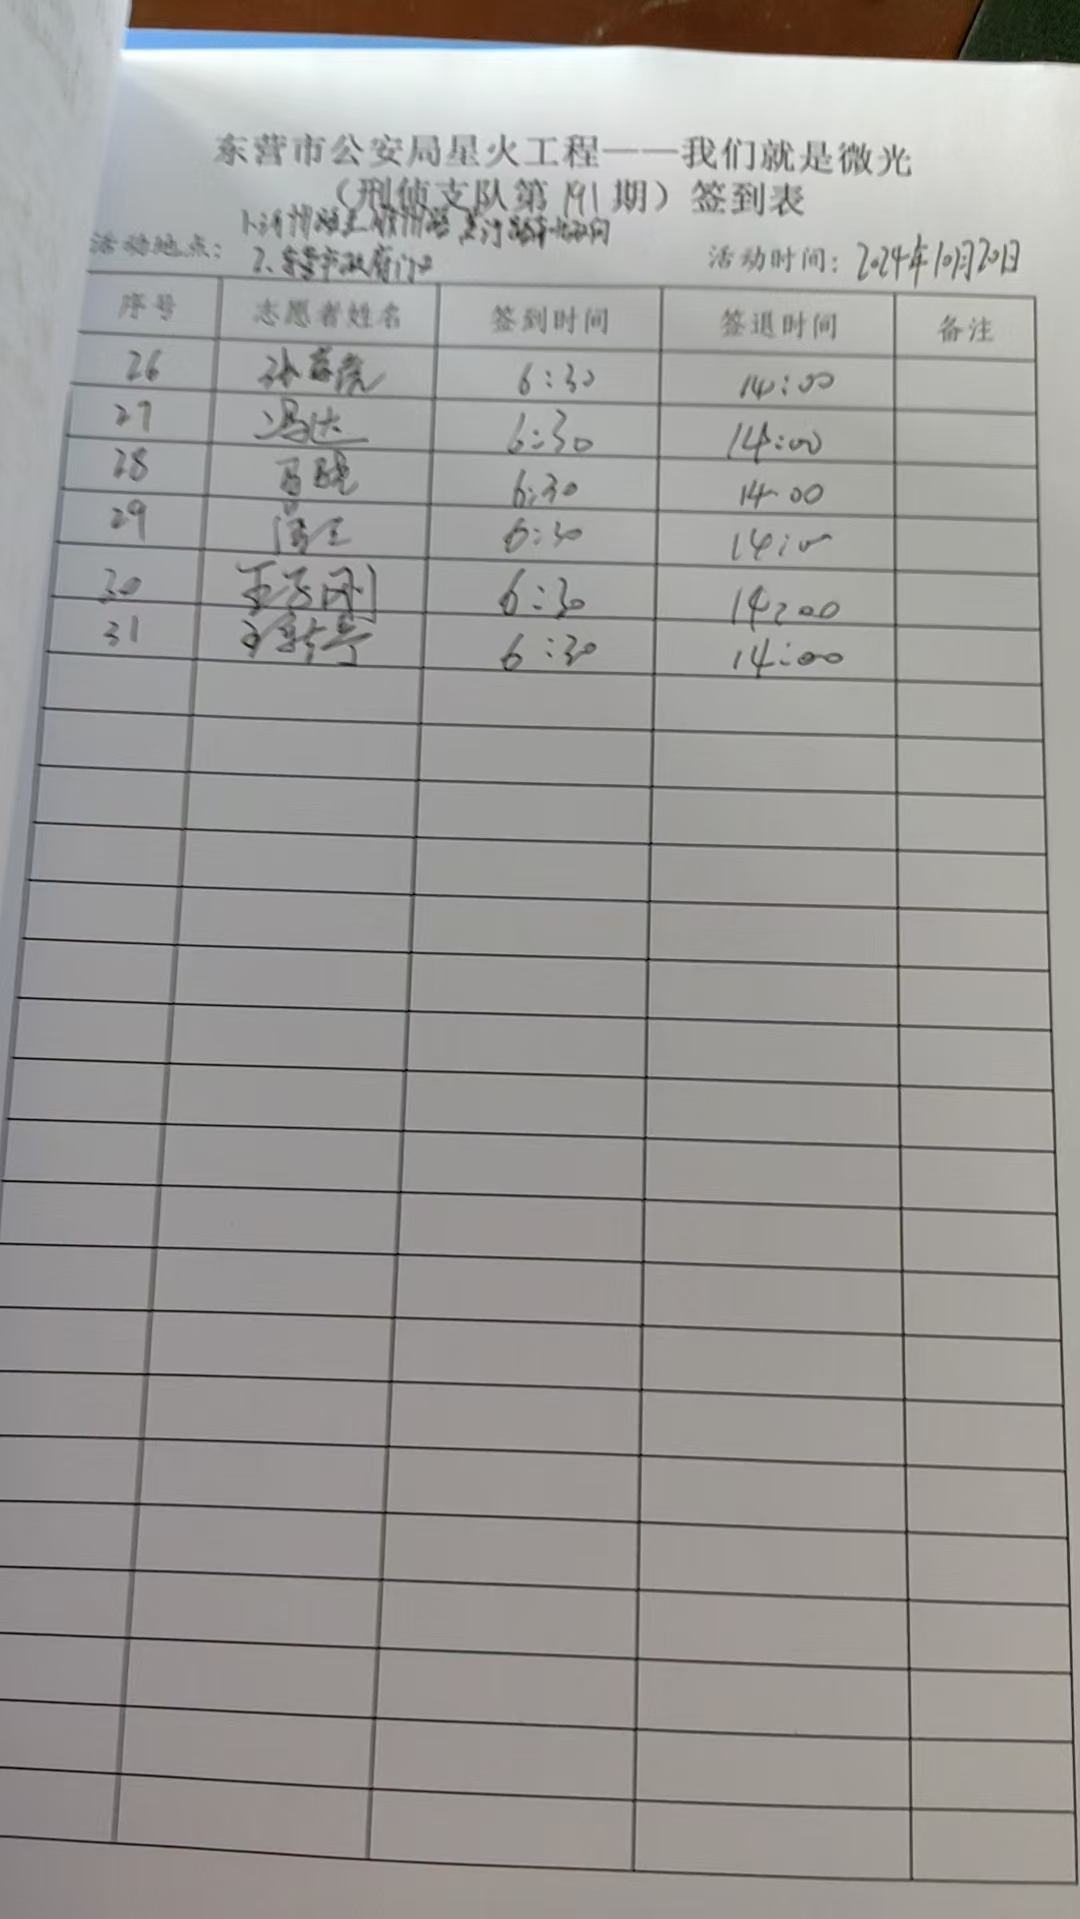 东营市公安局星火工程——我们就是微光
（刑侦支队第191期）签到表
活动地点：
2、东营市政府门口
活动时间：2024年10月20日
序号 志愿者姓名 签到时间 签退时间 备注
26 6:30 14:00
27 冯达 6:30 14:00
28 马晓 6:30 14:00
29 6:30 14:00
30 王子刚 6:30 14:00
31 6:30 14:00